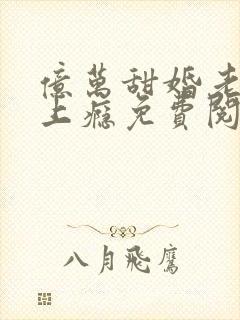 億萬甜婚老
上癮免費閱
八月飛鷹